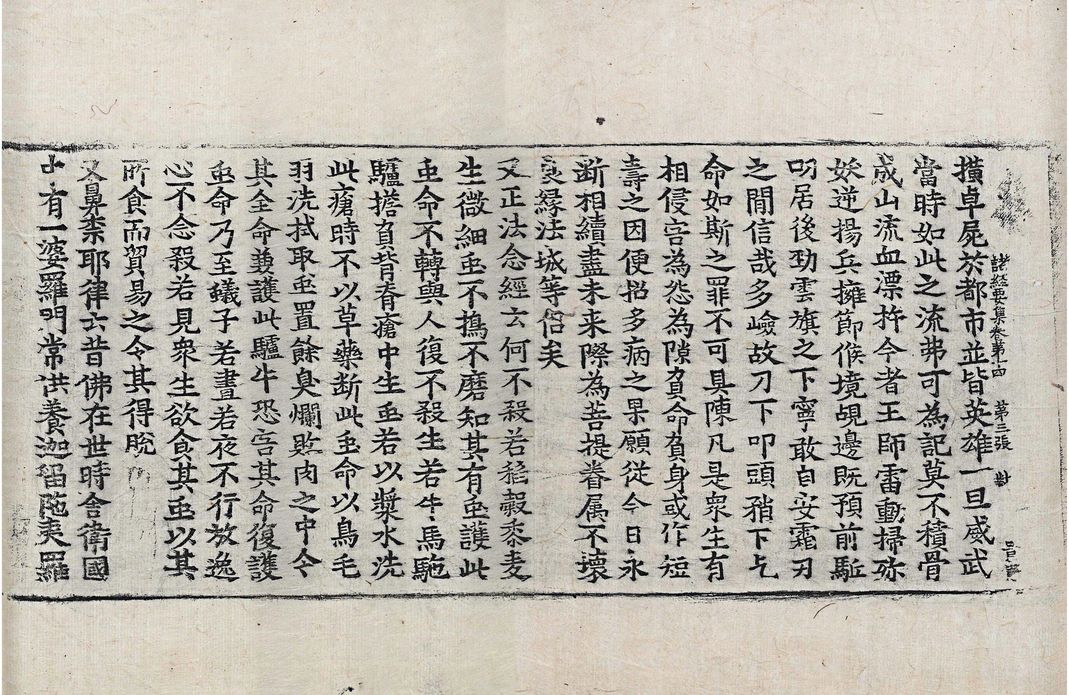 諸經要集卷第十四 第三張 對
橫卓屍於都市並皆英雄一旦威武
當時如此之流弗可為記莫不積骨
成山流血漂杵今者王師雷動掃殄
妖逆揚兵擁節候境覘邊既預前駈
叨居後勁雲旗之下寧敢自安霜刃
之間信哉多嶮故刀下叩頭稍下乞
命如斯之罪不可具陳凡是衆生有
相侵害為怨為隙負命負身或作短
壽之因便招多病之果願從今日永
断相續盡未来際為菩提眷属不壞
良緣法城等侶矣
又正法念經云何不殺若稻穀黍麦
生微細虫不擣不磨知其有虫護此
虫命不轉與人復不殺生若牛馬馳
驢擔負背脊瘡中生虫若以漿水洗
此瘡時不以草藥断此虫命以鳥毛
羽洗拭取虫置餘臭爛敗肉之中令
其全命兼護此驢牛恐害其命復護
虫命乃至蟻子若晝若夜不行放逸
心不念殺若見衆生欲食其虫以其
所食而貿易之令其得脫
又鼻柰耶律云昔佛在世時舍衛國
中有一婆羅門常供養迦留陁夷羅